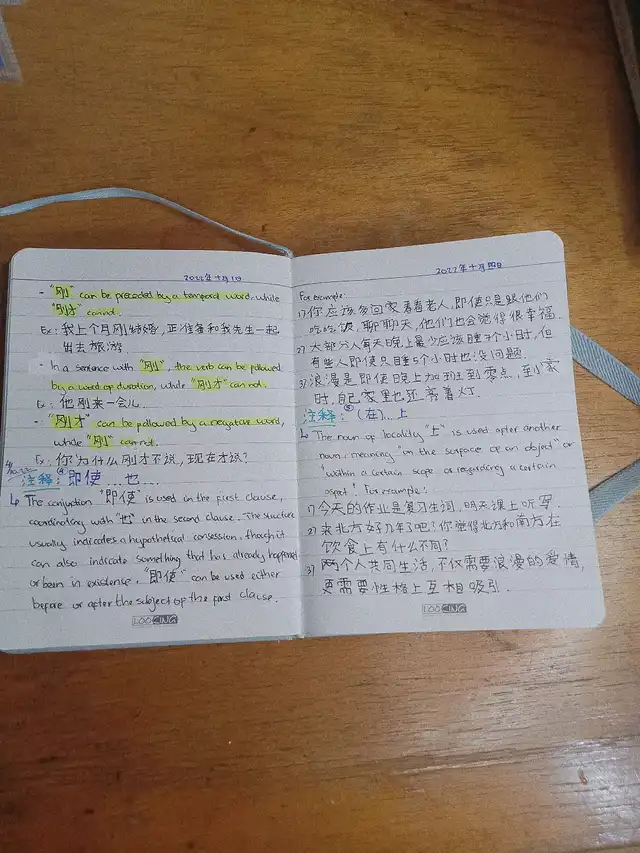 2022年十月1日
- "刚" can be preceded by a temporal word, while
"刚才" cannot.
Ex: 我上个月刚结婚,正准备和我先生一起
出去旅游
- In a sentence with "刚", the verb can be followed
by a word of duration, while "刚才" can not.
Ex: 他刚来一会儿.
- "刚才" can be followed by a negative word,
while "刚" can not.
Ex: 你为什么刚才不说,现在才说?
注释:④即使...也...
The conjunction "即使" is used in the first clause,
coordinating with "也" in the second clause. The structure
usually indicates a hypothetical consession, though it
can also indicate something that has already happened
or been in existence, "即使" can be used either
before or after the subject of the first clause.
LOOCHUG
2022年十月四日
For example:
1) 你应该多回家看看老人,即使只是跟他们
吃吃饭,聊聊天,他们也会觉得很幸福.
2) 大部分人每天晚上最少应该睡7个小时,但
有些人即使只睡5个小时也没问题.
3) 浪漫是即使晚上加班到零点,到家
时,自己家里也还亮着灯.
注释:⑤(在)...上
The noun of locality "上" is used after another
noun, meaning "on the surface of an object" or
"within a certain scope or regarding a certain
aspect". For example:
1) 今天的作业是复习生词,明天课上听写.
2) 来北方好几年了吧?你觉得北方和南方在
饮食上有什么不同?
3) 两个人共同生活,不仅需要浪漫的爱情,
更需要性格上互相吸引.